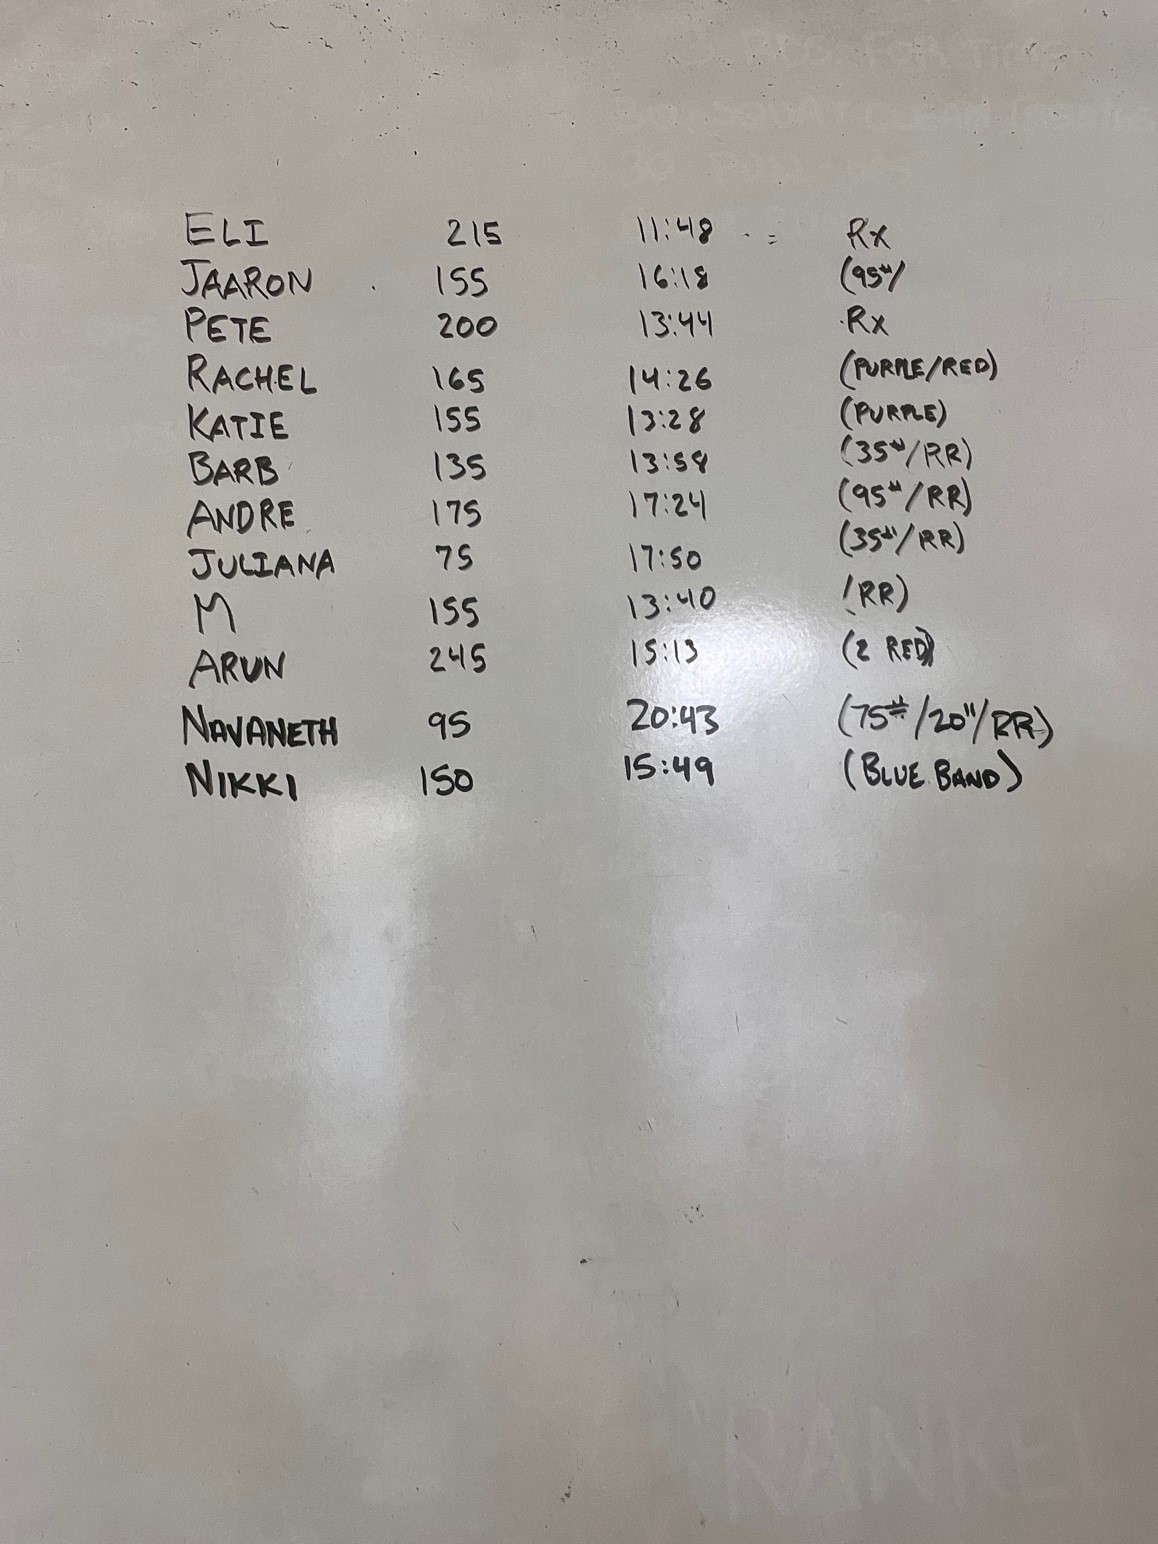 ELI 215 11:48 Rx
JAARON 155 16:18 (95#/
PETE 200 13:44 Rx
RACHEL 165 14:26 (PURPLE/RED)
KATIE 155 13:28 (PURPLE)
BARB 135 13:58 (35#/RR)
ANDRE 175 17:24 (95#/RR)
JULIANA 75 17:50 (35#/RR)
M 155 13:40 /RR)
ARUN 245 15:13 (2 RED)
NAVANETH 95 20:43 (75#/20"/RR)
NIKKI 150 15:49 (BLUE BAND)